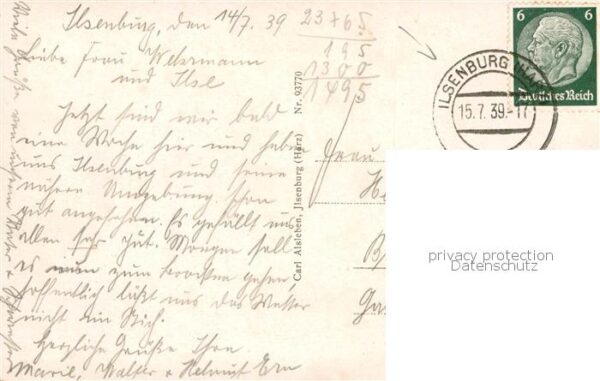 Ilsenburg, den 14/7. 39
Liebe Frau Wehrmann
und Ilse
Jetzt sind wir bald
eine Woche hier und haben
uns Ilsenburg und seine
nähere Umgebung schon
gut angesehen. Es gefällt uns
allen sehr gut. Morgen soll
es zum Brocken gehen,
hoffentlich läßt uns das Wetter
nicht im Stich.
Herzliche Grüße Ihre
Marie, Walter + Helmut
Viele Grüße von
23+65
195
1300
1495
Carl Alsleben, Jlsenburg (Harz) Nr. 93770
Frau
ILSENBURG (HARZ)
15.7.39.-17
6 6
Deutsches Reich
privacy protection
Datenschutz